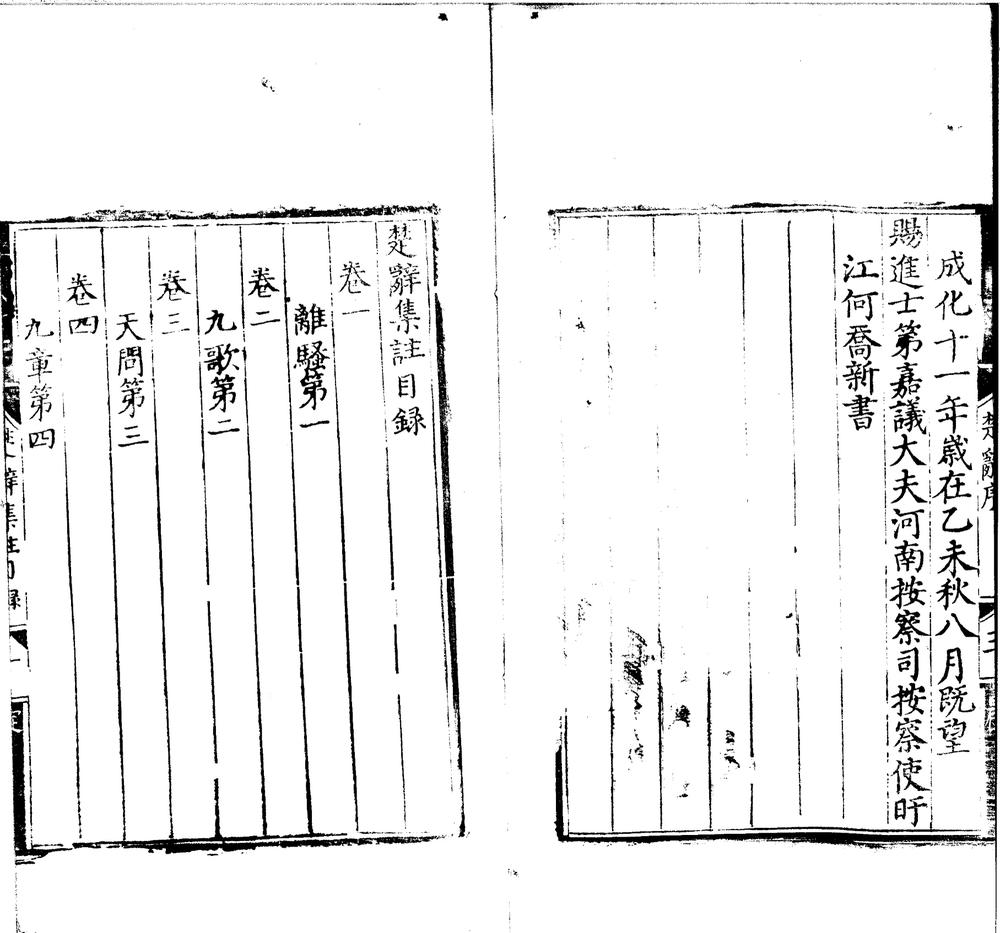 楚辭序
成化十一年歲在乙未秋八月既望
賜進士第嘉議大夫河南按察司按察使旴
江何喬新書
楚辭集註目録
卷一
離騷第一
卷二
九歌第二
卷三
天問第三
卷四
九章第四
楚辭集註目録
一